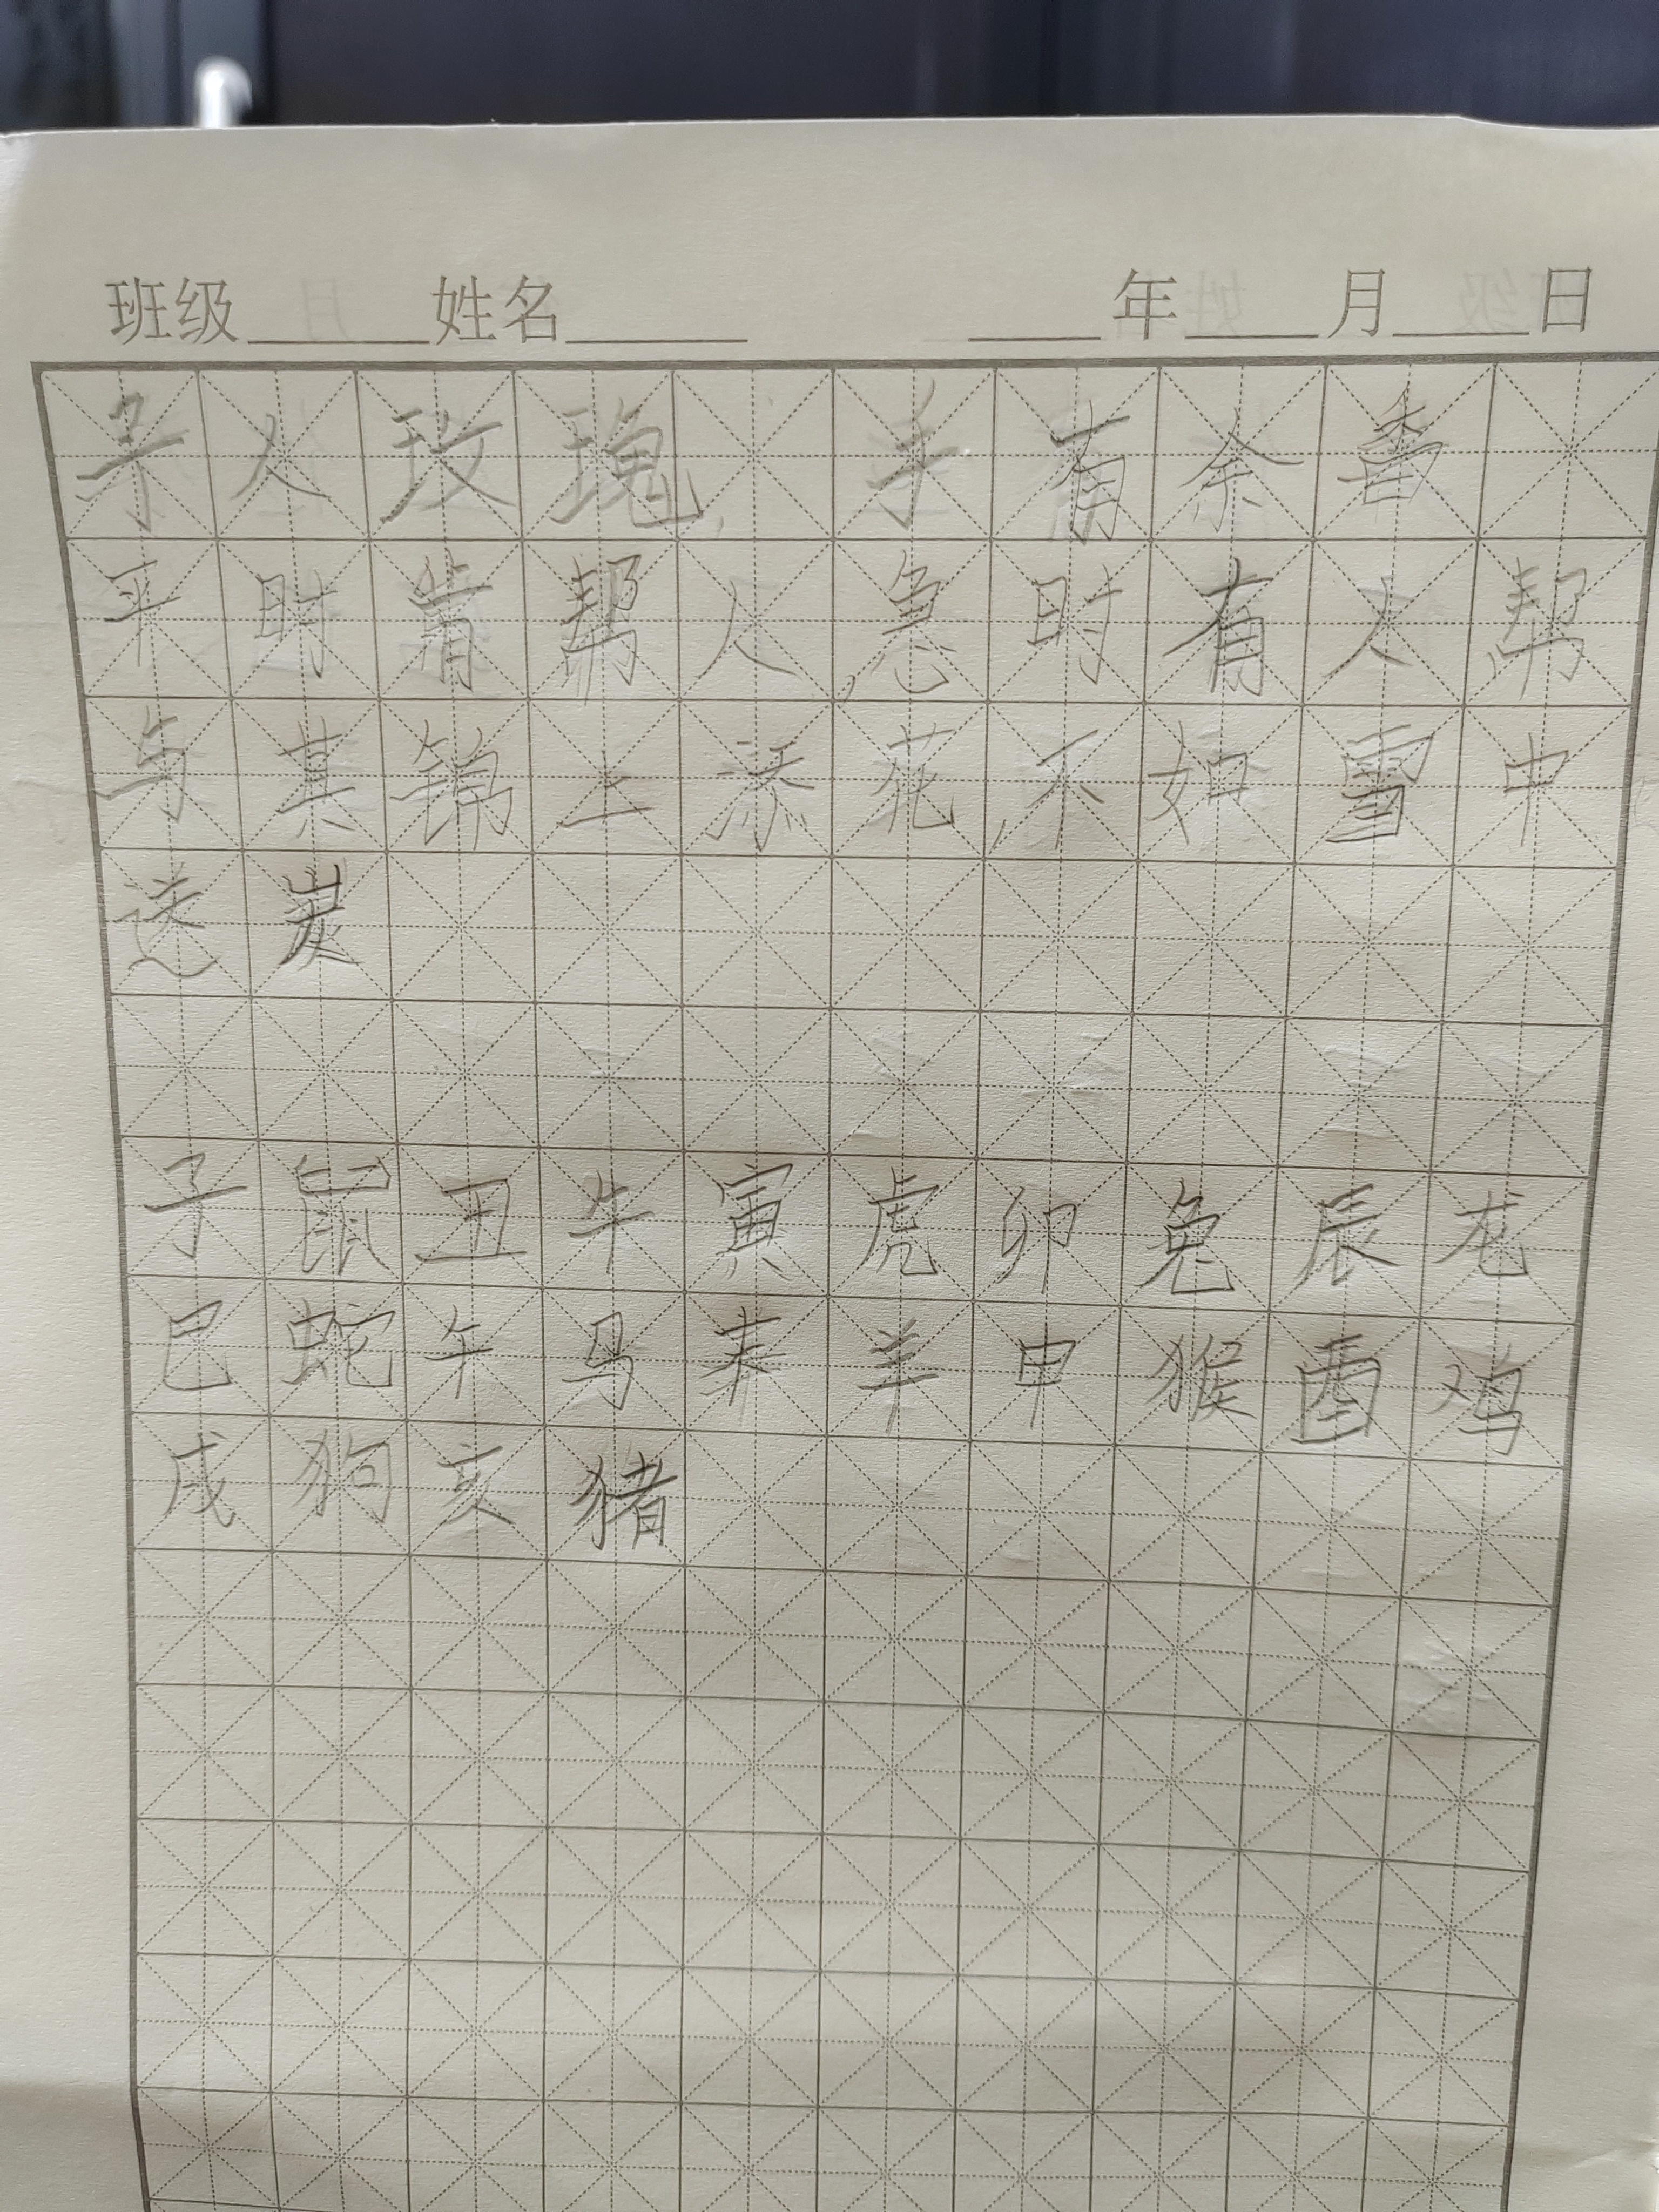 班级 姓名 年 月 日
予人玫瑰,手有余香
平时肯帮人,急时有人帮
与其锦上添花,不如雪中
送炭
子鼠丑牛寅虎卯兔辰龙
巳蛇午马未羊申猴酉鸡
戌狗亥猪